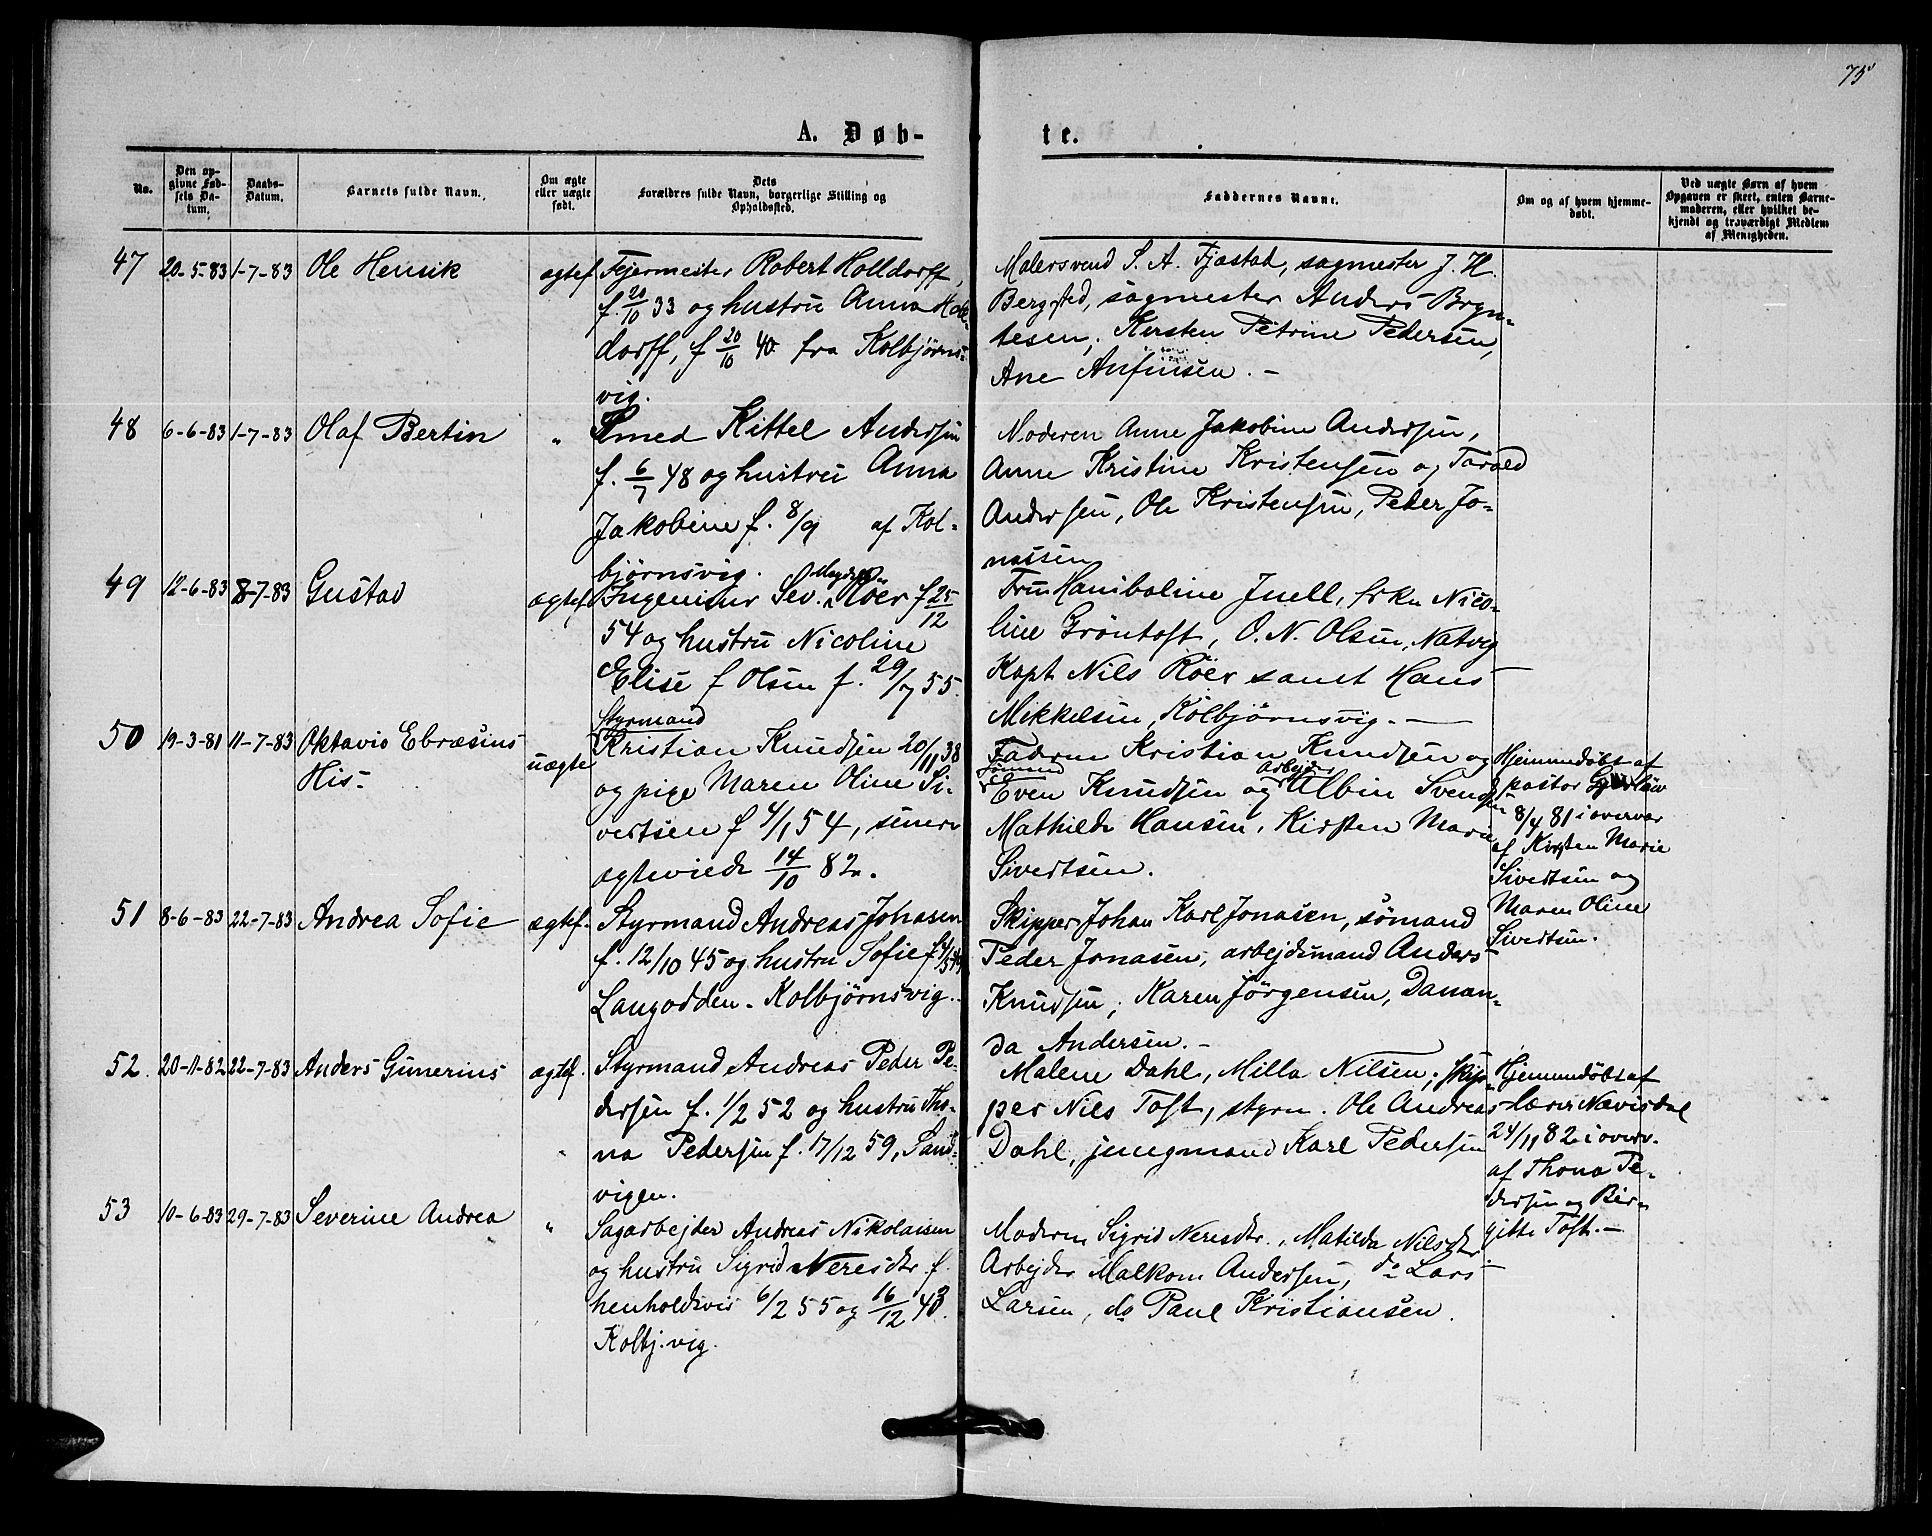 75
A. Døb-
te.
No.
Den op-
givne Fød-
sels Da-
tum.
Daabs-
Datum.
Barnets fulde Navn.
Om ægte
eller uægte
født.
Dets
Forældres fulde Navn, borgerlige Stilling og
Opholdssted.
Faddernes Navne.
Om og af hvem hjemme-
døbt.
Ved uægte Børn af hvem
Opgaven er skeet, enten Barne-
moderen, eller hvilket be-
kjendt og troværdigt Medlem
af Menigheden.
47 20-5-83 1-7-83 Ole Henrik ægtef.
Fejermester Robert Holldorff,
f. 20/10 33 og hustru Anna Hol-
dorff, f 20/10 40 fra Kolbjørns-
vig.
Malersvend S. A. Fjæstad, sagmester J. H.
Bergsted, sagmester Anders Bryn-
tesen, Kirsten Petrine Pedersen,
Ane Anfinsen. -
48 6-6-83 1-7-83 Olaf Bertin "
Smed Kittel Andersen
f. 6/7 48 og hustru Anna
Jakobine f. 8/9 af Kol-
bjørnsvig.
Moderen Anne Jakobine Andersen,
Anne Kristine Kristensen og Tarald
Andersen, Ole Kristensen, Peder Jo-
nassen
49 12-6-83 8-7-83 Gustav ægtef.
Ingeniør Sev. Røer f 25/12
54 og hustru Nicoline
Elise f Olsen f. 29/7 55.
Fru Haniboline Juell, frkn Nico-
line Grøntoft, O. N. Olsen, Natvig
Kapt Nils Röer samt Hans
Mikkelsen, Kolbjørnsvig. -
50 19-3-81 11-7-83 Oktavio Ebræsius
His- uægte
Styrmand
Kristian Knudsen 20/11 38
og pige Maren Oline Si-
vertsen f 4/1 54, senere
ægteviede 14/10 82.
Faderen Kristian Knudsen og
Sømand Arbejder
Even Knudsen og Albin Svendsen
Mathilde Hansen, Kirsten Marie
Sivertsen.
Hjemmedøbt af
pastor
8/4 81 i overvær
af Kirsten Marie
Sivertsen og
Maren Oline
Sivertsen.
51 8-6-83 22-7-83 Andrea Sofie ægtef.
Styrmand Andreas Johnsen
f. 12/10 45 og hustru Sofie f
Langodden - Kolbjørnsvig.
Skipper Johan Karl Jonasen, sömand
Peder Jonasen, arbejdsmand Anders
Knudsen, Karen Jörgensen, Danan-
da Andersen. -
52. 20-11-82 22-7-83 Anders Gunerius ægtef.
Styrmand Andreas Peder Pe-
dersen f. 1/2 52 og hustru Tho-
na Pedersen f. 17/12 59, Sand-
vigen.
Malene Dahl, Milla Nilsen, skip-
per Nils Toft, styrm. Ole Andreas
Dahl, jungmand Karl Pedersen
Hjemmedøbt af
Lærer Nævisdal
24/11 82 i overv.
af Thona Pe-
dersen og Bir-
gitte Toft. -
53 10-6-83 29-7-83 Severine Andrea "
Sagarbejder Andreas Nikolaisen
og hustru Sigrid Neresdtr f.
henholdsvis 6/2 55 og 16/12 43.
Kolbj.vig.
Moderen Sigrid Neresdtr., Matilda Nilsdtr
Arbejder Malkom Andersen, do Lars
Larsen, do Paul Kristiansen.